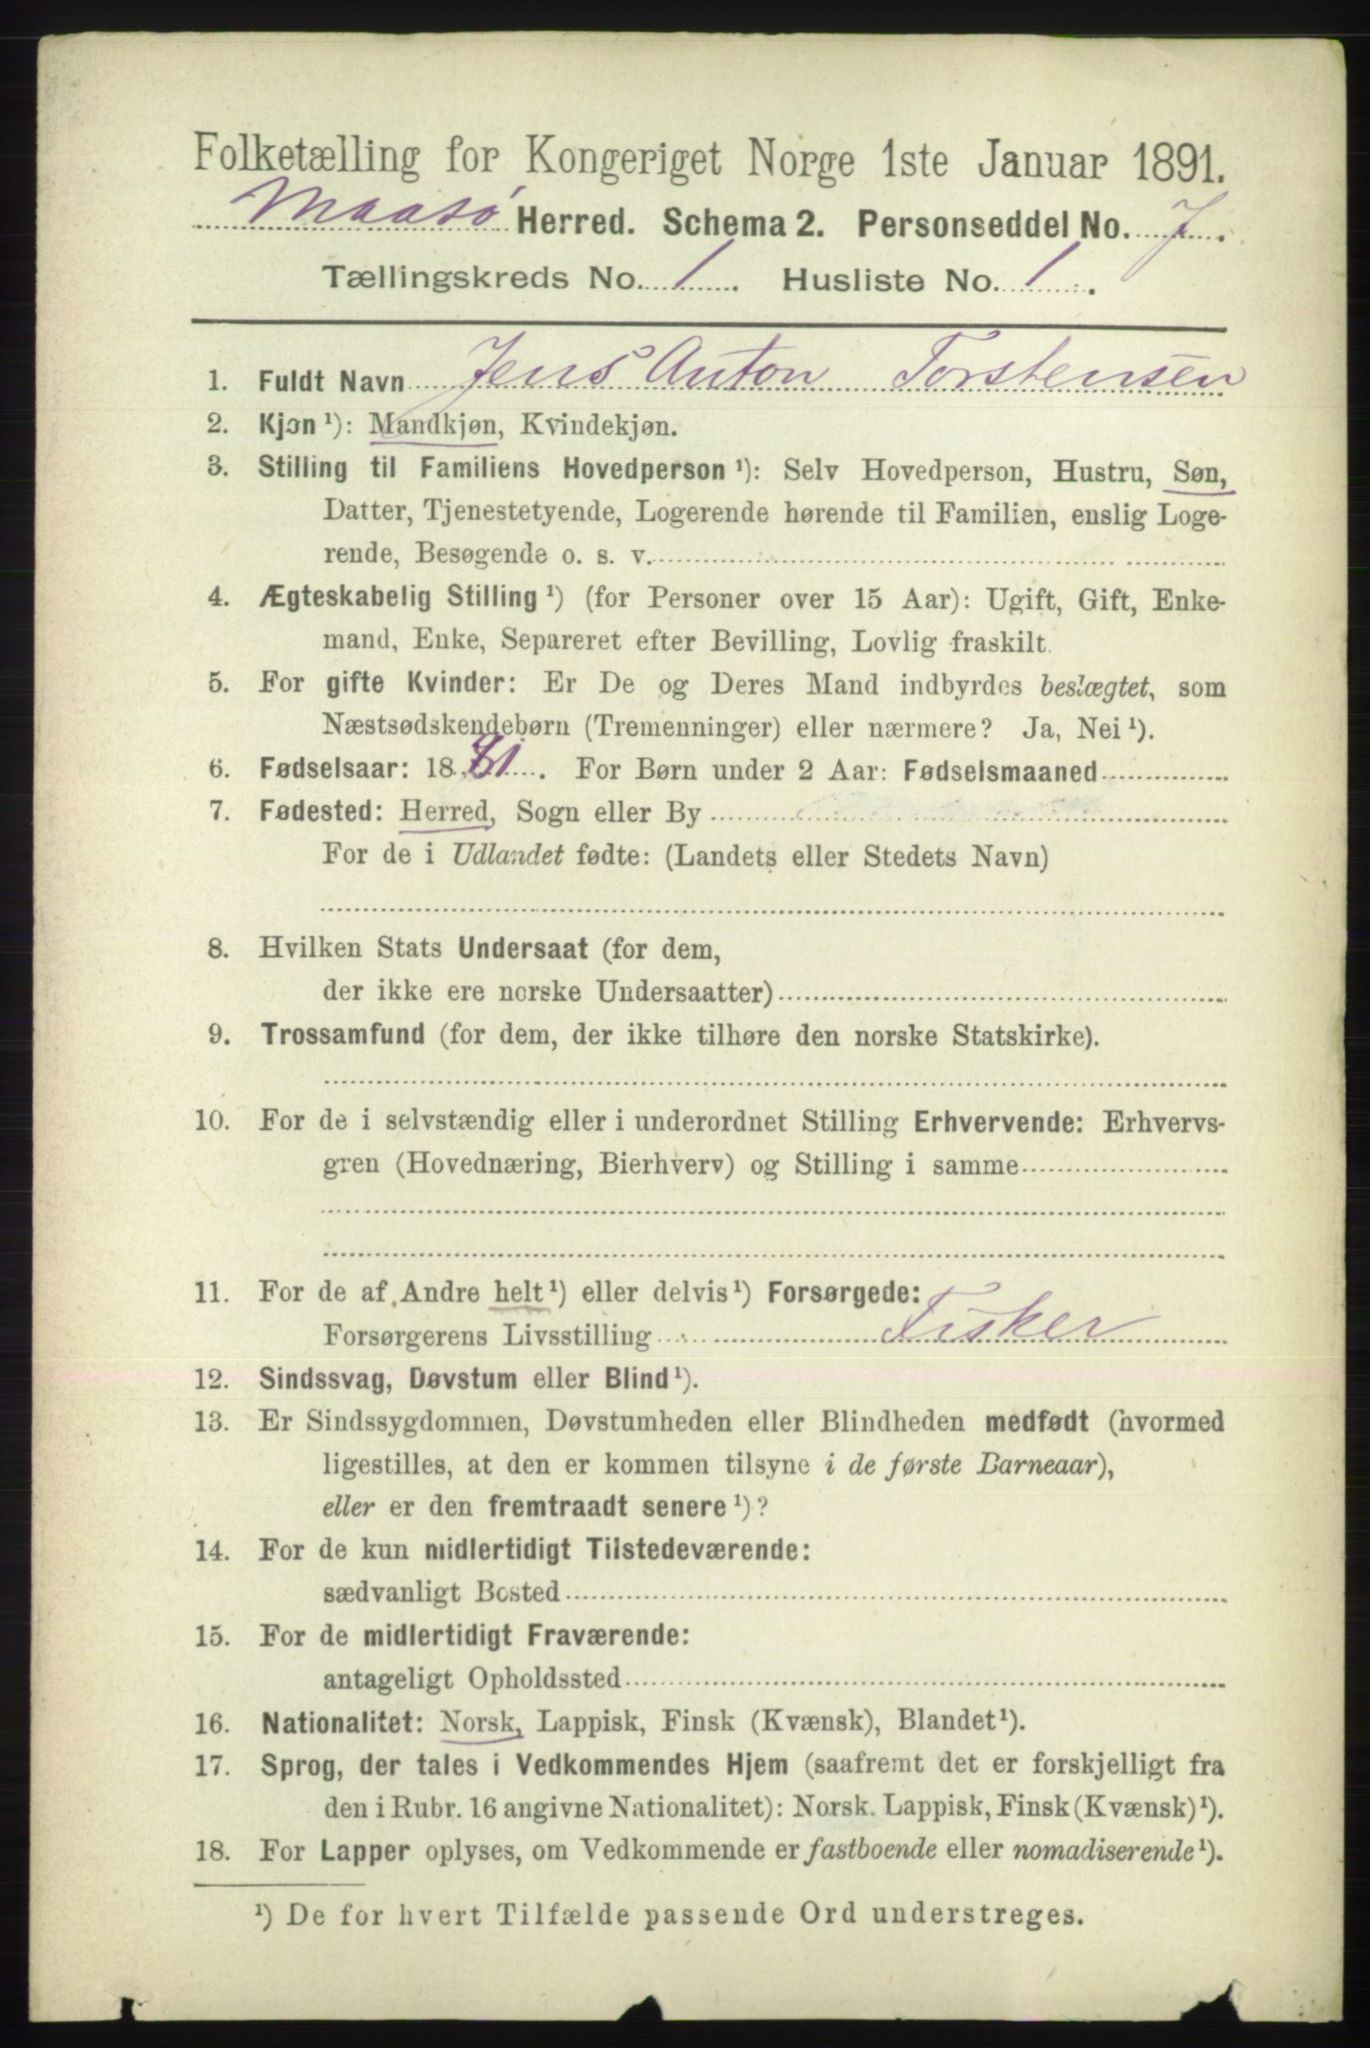 Folketælling for Kongeriget Norge 1ste Januar 1891.
Maasø Herred. Schema 2. Personseddel No. 7.
Tællingskreds No. 1. Husliste No. 1.
1. Fuldt Navn Jens Anton Torstensen
2. Kjøn ¹): Mandkjøn, Kvindekjøn.
3. Stilling til Familiens Hovedperson ¹): Selv Hovedperson, Hustru, Søn,
Datter, Tjenestetyende, Logerende hørende til Familien, enslig Loge-
rende, Besøgende o. s. v.
4. Ægteskabelig Stilling ¹) (for Personer over 15 Aar): Ugift, Gift, Enke-
mand, Enke, Separeret efter Bevilling, Lovlig fraskilt.
5. For gifte Kvinder: Er De og Deres Mand indbyrdes beslægtet, som
Næstsødskendebørn (Tremenninger) eller nærmere? Ja, Nei ¹).
6. Fødselsaar: 1881. For Børn under 2 Aar: Fødselsmaaned
7. Fødested: Herred, Sogn eller By
For de i Udlandet fødte: (Landets eller Stedets Navn)
8. Hvilken Stats Undersaat (for dem,
der ikke ere norske Undersaatter)
9. Trossamfund (for dem, der ikke tilhøre den norske Statskirke).
10. For de i selvstændig eller i underordnet Stilling Erhvervende: Erhvervs-
gren (Hovednæring, Bierhverv) og Stilling i samme
11. For de af Andre helt ¹) eller delvis ¹) Forsørgede:
Forsørgerens Livsstilling Fisker
12. Sindssvag, Døvstum eller Blind ¹).
13. Er Sindssygdommen, Døvstumheden eller Blindheden medfødt (hvormed
ligestilles, at den er kommen tilsyne i de første Barneaar),
eller er den fremtraadt senere ¹)?
14. For de kun midlertidigt Tilstedeværende:
sædvanligt Bosted
15. For de midlertidigt Fraværende:
antageligt Opholdssted
16. Nationalitet: Norsk, Lappisk, Finsk (Kvænsk), Blandet ¹).
17. Sprog, der tales i Vedkommendes Hjem (saafremt det er forskjelligt fra
den i Rubr. 16 angivne Nationalitet): Norsk. Lappisk, Finsk (Kvænsk) ¹).
18. For Lapper oplyses, om Vedkommende er fastboende eller nomadiserende ¹).
¹) De for hvert Tilfælde passende Ord understreges.